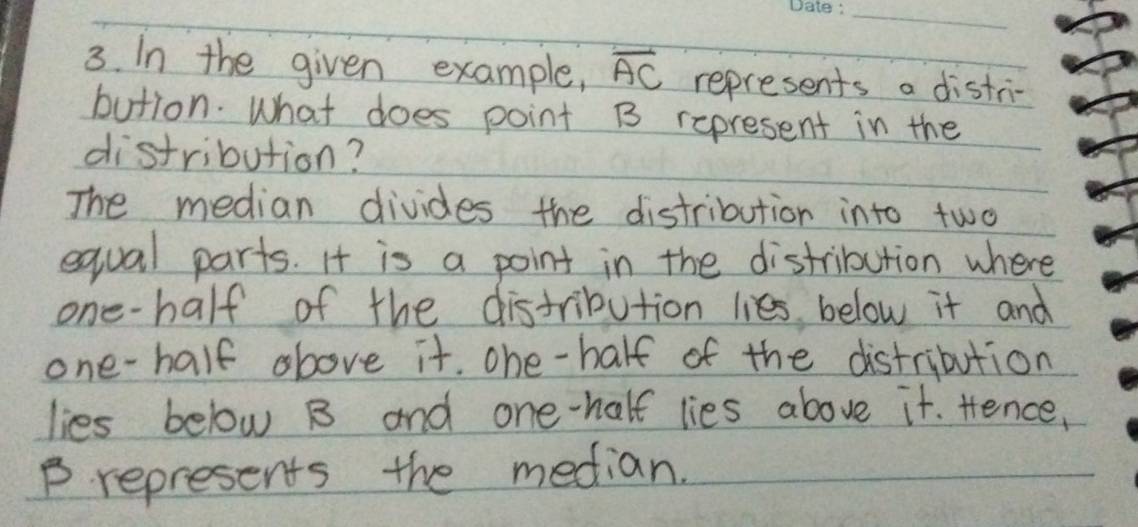 Date :
3. In the given example, A̅C̅ represents a distri-
bution. What does point B represent in the
distribution?
The median divides the distribution into two
equal parts. It is a point in the distribution where
one-half of the distribution lies below it and
one-half above it. One-half of the distribution
lies below B and one-half lies above it. Hence,
B represents the median.